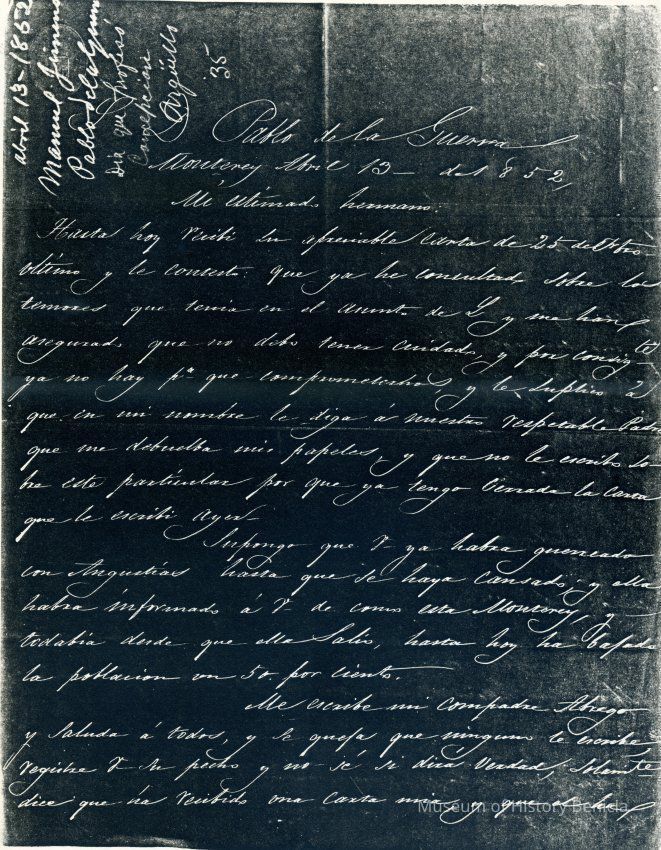 abril 13-1852
Manuel Jimeno
Pablo de la Guerra
Dia que profesó
Concepcion
Argüello
35
Pablo de la Guerra
Monterey Abril 13 - de 1852,
Mi estimado hermano:
Hasta hoy recibi su apreciable carta de 25 del
ultimo y le contesto que ya he consultado sobre los
temores que tenia en el asunto de L y me han
asegurado que no debo tener cuidado, y por consigte
ya no hay pa que comprometerlos y le suplico a
que en mi nombre le diga á nuestro respetable Padre
que me debuelba mis papeles, y que no le escribo so
bre este particular por que ya tengo cerrada la carta
que le escribi ayer.
Supongo que V ya habra guerreado
con Angustias hasta que se haya cansado; y ella
habra informado á V de como esta Monterey, y
todabia desde que ella Salio, hasta hoy ha bajado
la poblacion un 50. por ciento.
Me escribe mi compadre Abrego
y saluda á todos, y se queja que ninguno le escribe,
registre V su pecho y no sé si dira verdad, Solamte
dice que ha recibido una carta mia y que el has
Museum of History Benicia